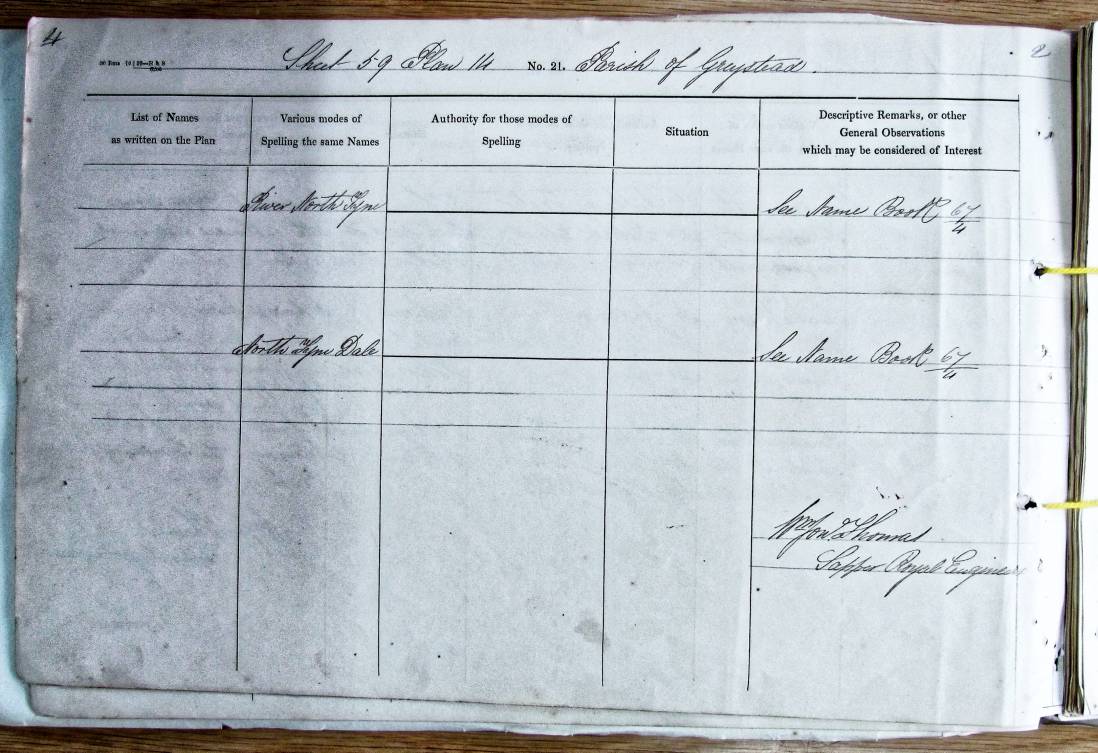 4
2
Sheet 59 Plan 14 No. 21. Parish of Greystead.
List of Names
as written on the Plan
Various modes of
Spelling the same Names
Authority for those modes of
Spelling
Situation
Descriptive Remarks, or other
General Observations
which may be considered of Interest
River North Tyne See Name Book 67/4
North Tyne Dale See Name Book 67/4
Wm Jon. Thomas
Sapper Royal Engineers